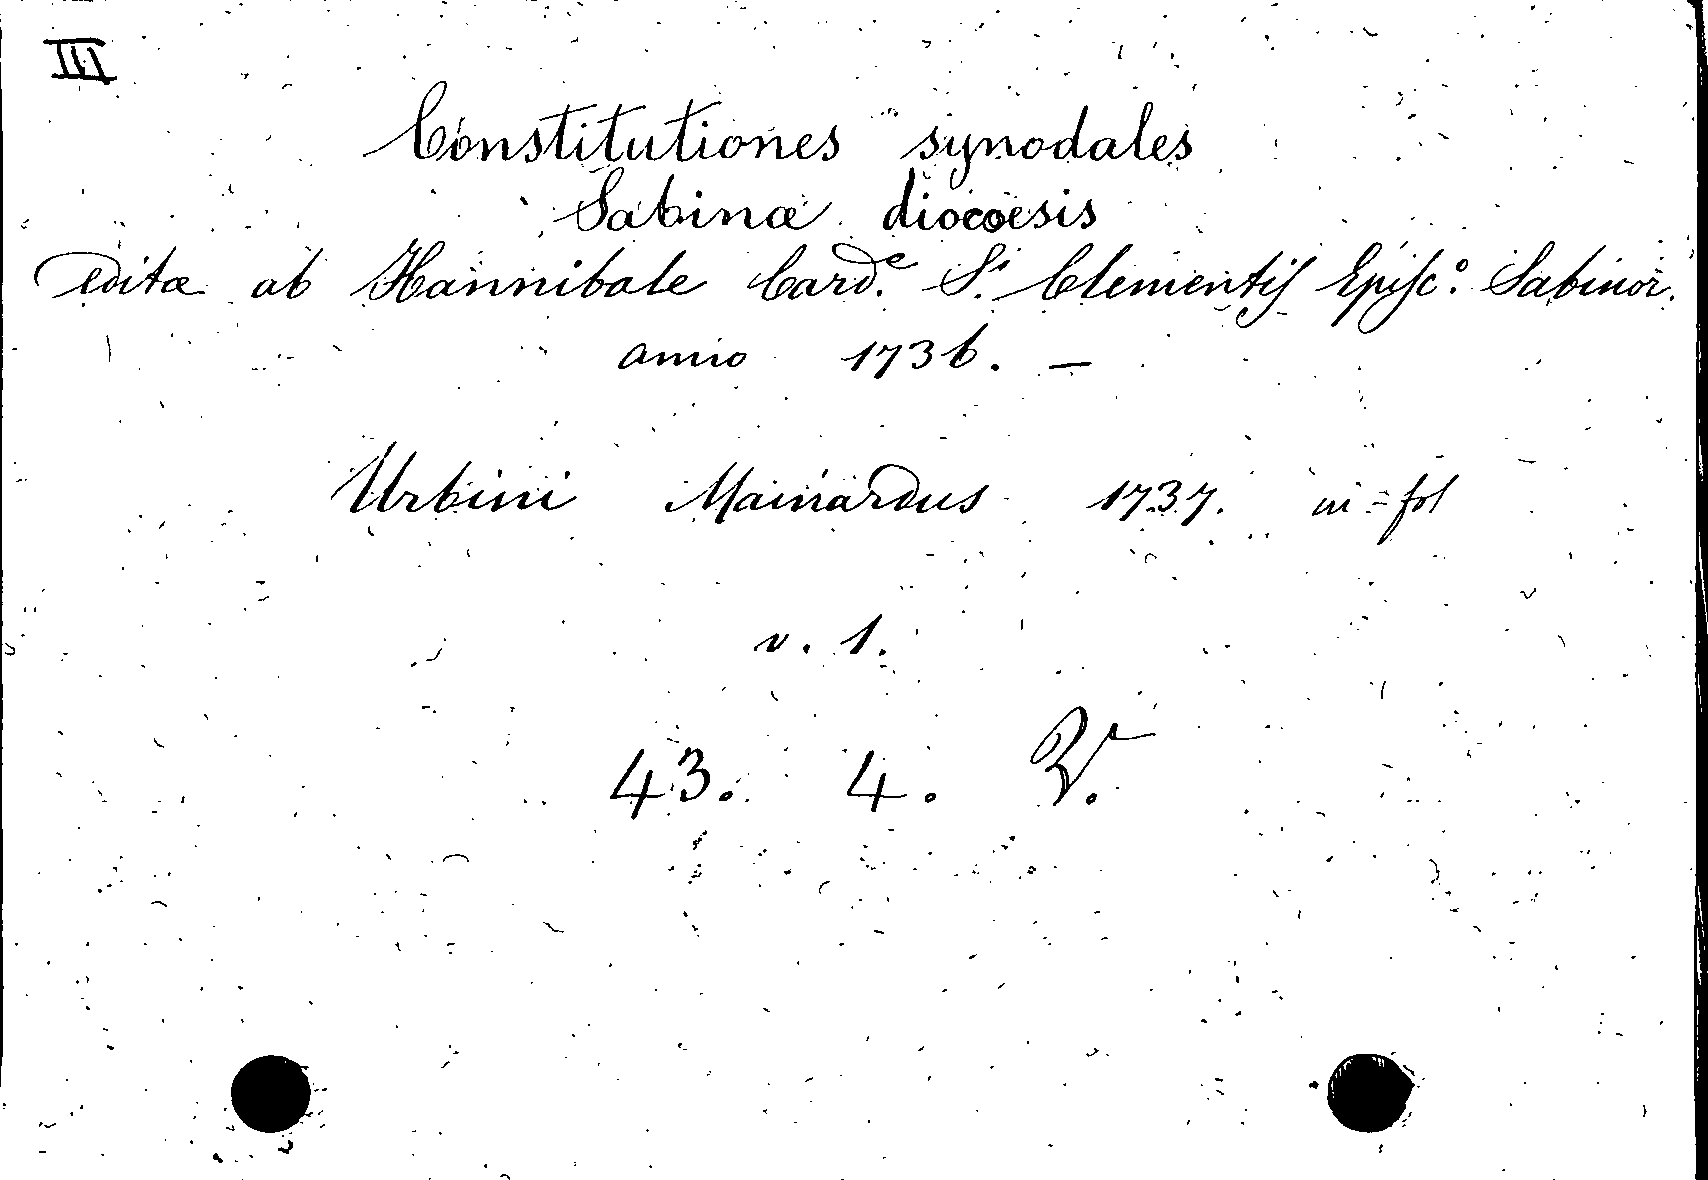 III
Constitutiones synodales
Sabinæ diocœsis
editæ ab Hannibale Card.e S.i Clementis Episc.o Sabinor.
anno 1736. —
Urbini Mainardus 1737. in=fol
v. 1.
43. 4.